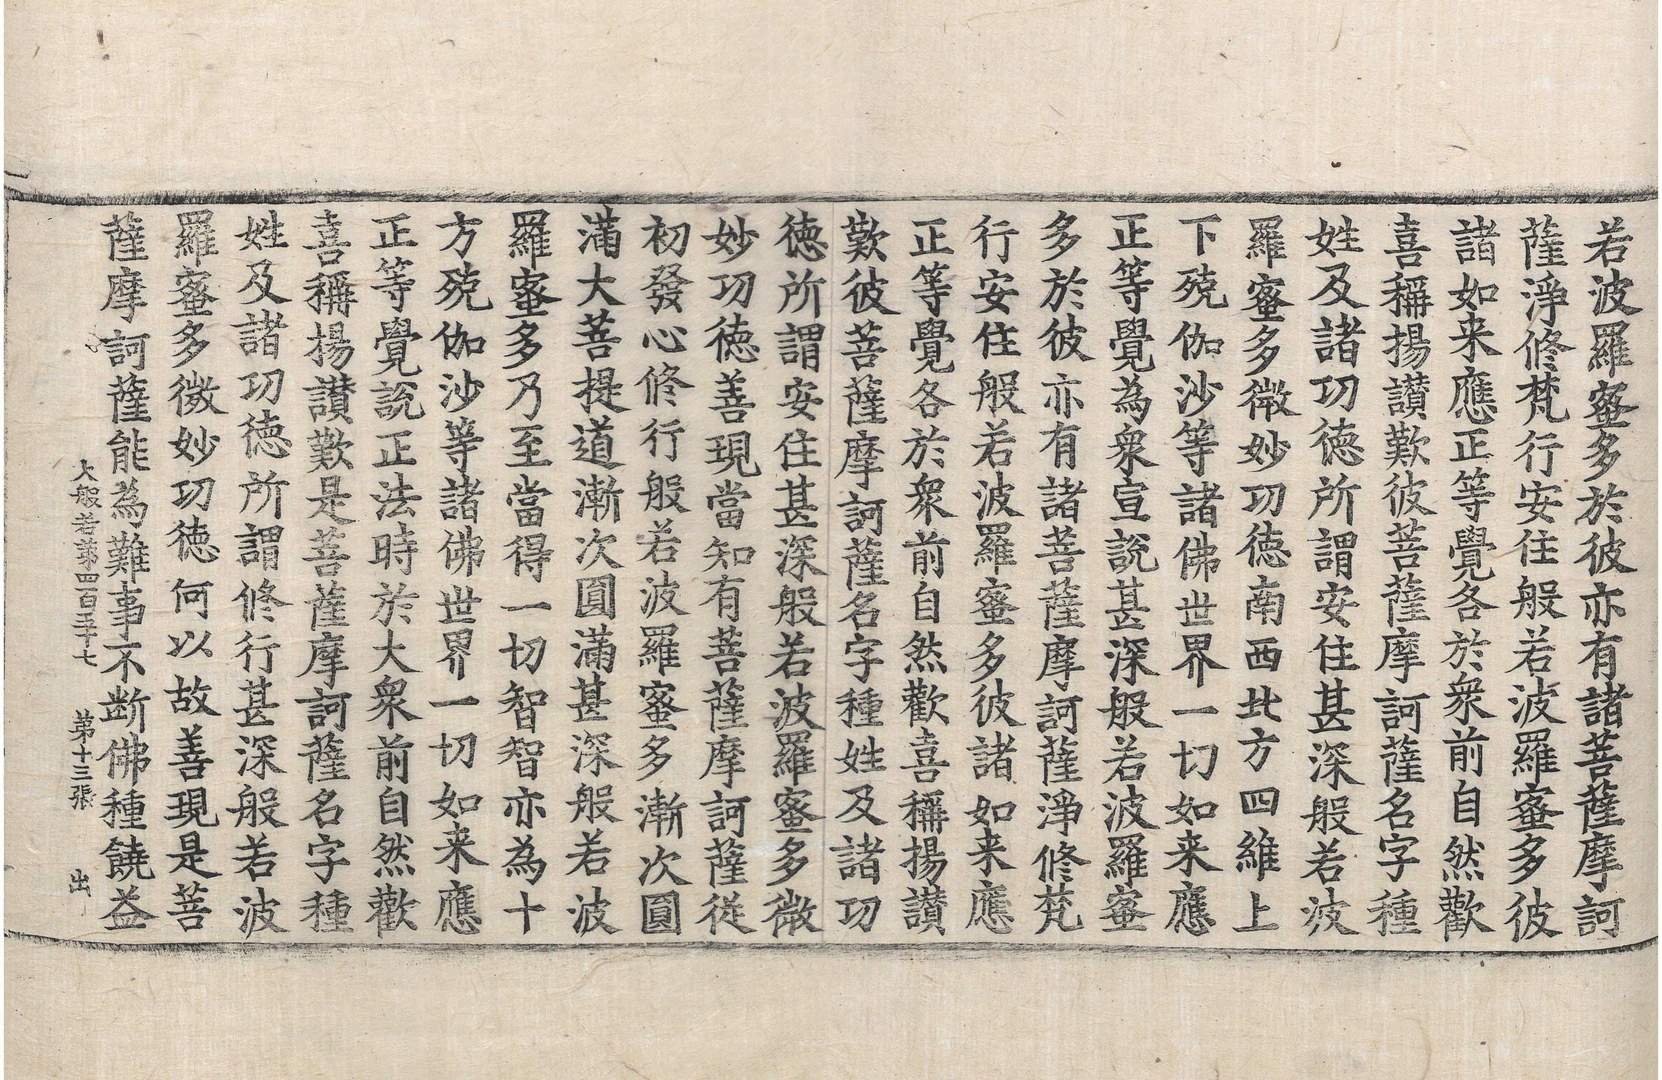 若波羅蜜多於彼亦有諸菩薩摩訶
薩淨修梵行安住般若波羅蜜多彼
諸如来應正等覺各於衆前自然歡
喜稱揚讃歎彼菩薩摩訶薩名字種
姓及諸功徳所謂安住甚深般若波
羅蜜多微妙功徳南西北方四維上
下殑伽沙等諸佛世界一切如来應
正等覺為衆宣說甚深般若波羅蜜
多於彼亦有諸菩薩摩訶薩淨修梵
行安住般若波羅蜜多彼諸如来應
正等覺各於衆前自然歡喜稱揚讃
歎彼菩薩摩訶薩名字種姓及諸功
徳所謂安住甚深般若波羅蜜多微
妙功徳善現當知有菩薩摩訶薩従
初發心修行般若波羅蜜多漸次圓
滿大菩提道漸次圓滿甚深般若波
羅蜜多乃至當得一切智智亦為十
方殑伽沙等諸佛世界一切如来應
正等覺說正法時於大衆前自然歡
喜稱揚讃歎是菩薩摩訶薩名字種
姓及諸功徳所謂修行甚深般若波
羅蜜多微妙功徳何以故善現是菩
薩摩訶薩能為難事不断佛種饒益
大般若第四百五十七 第十三張 出